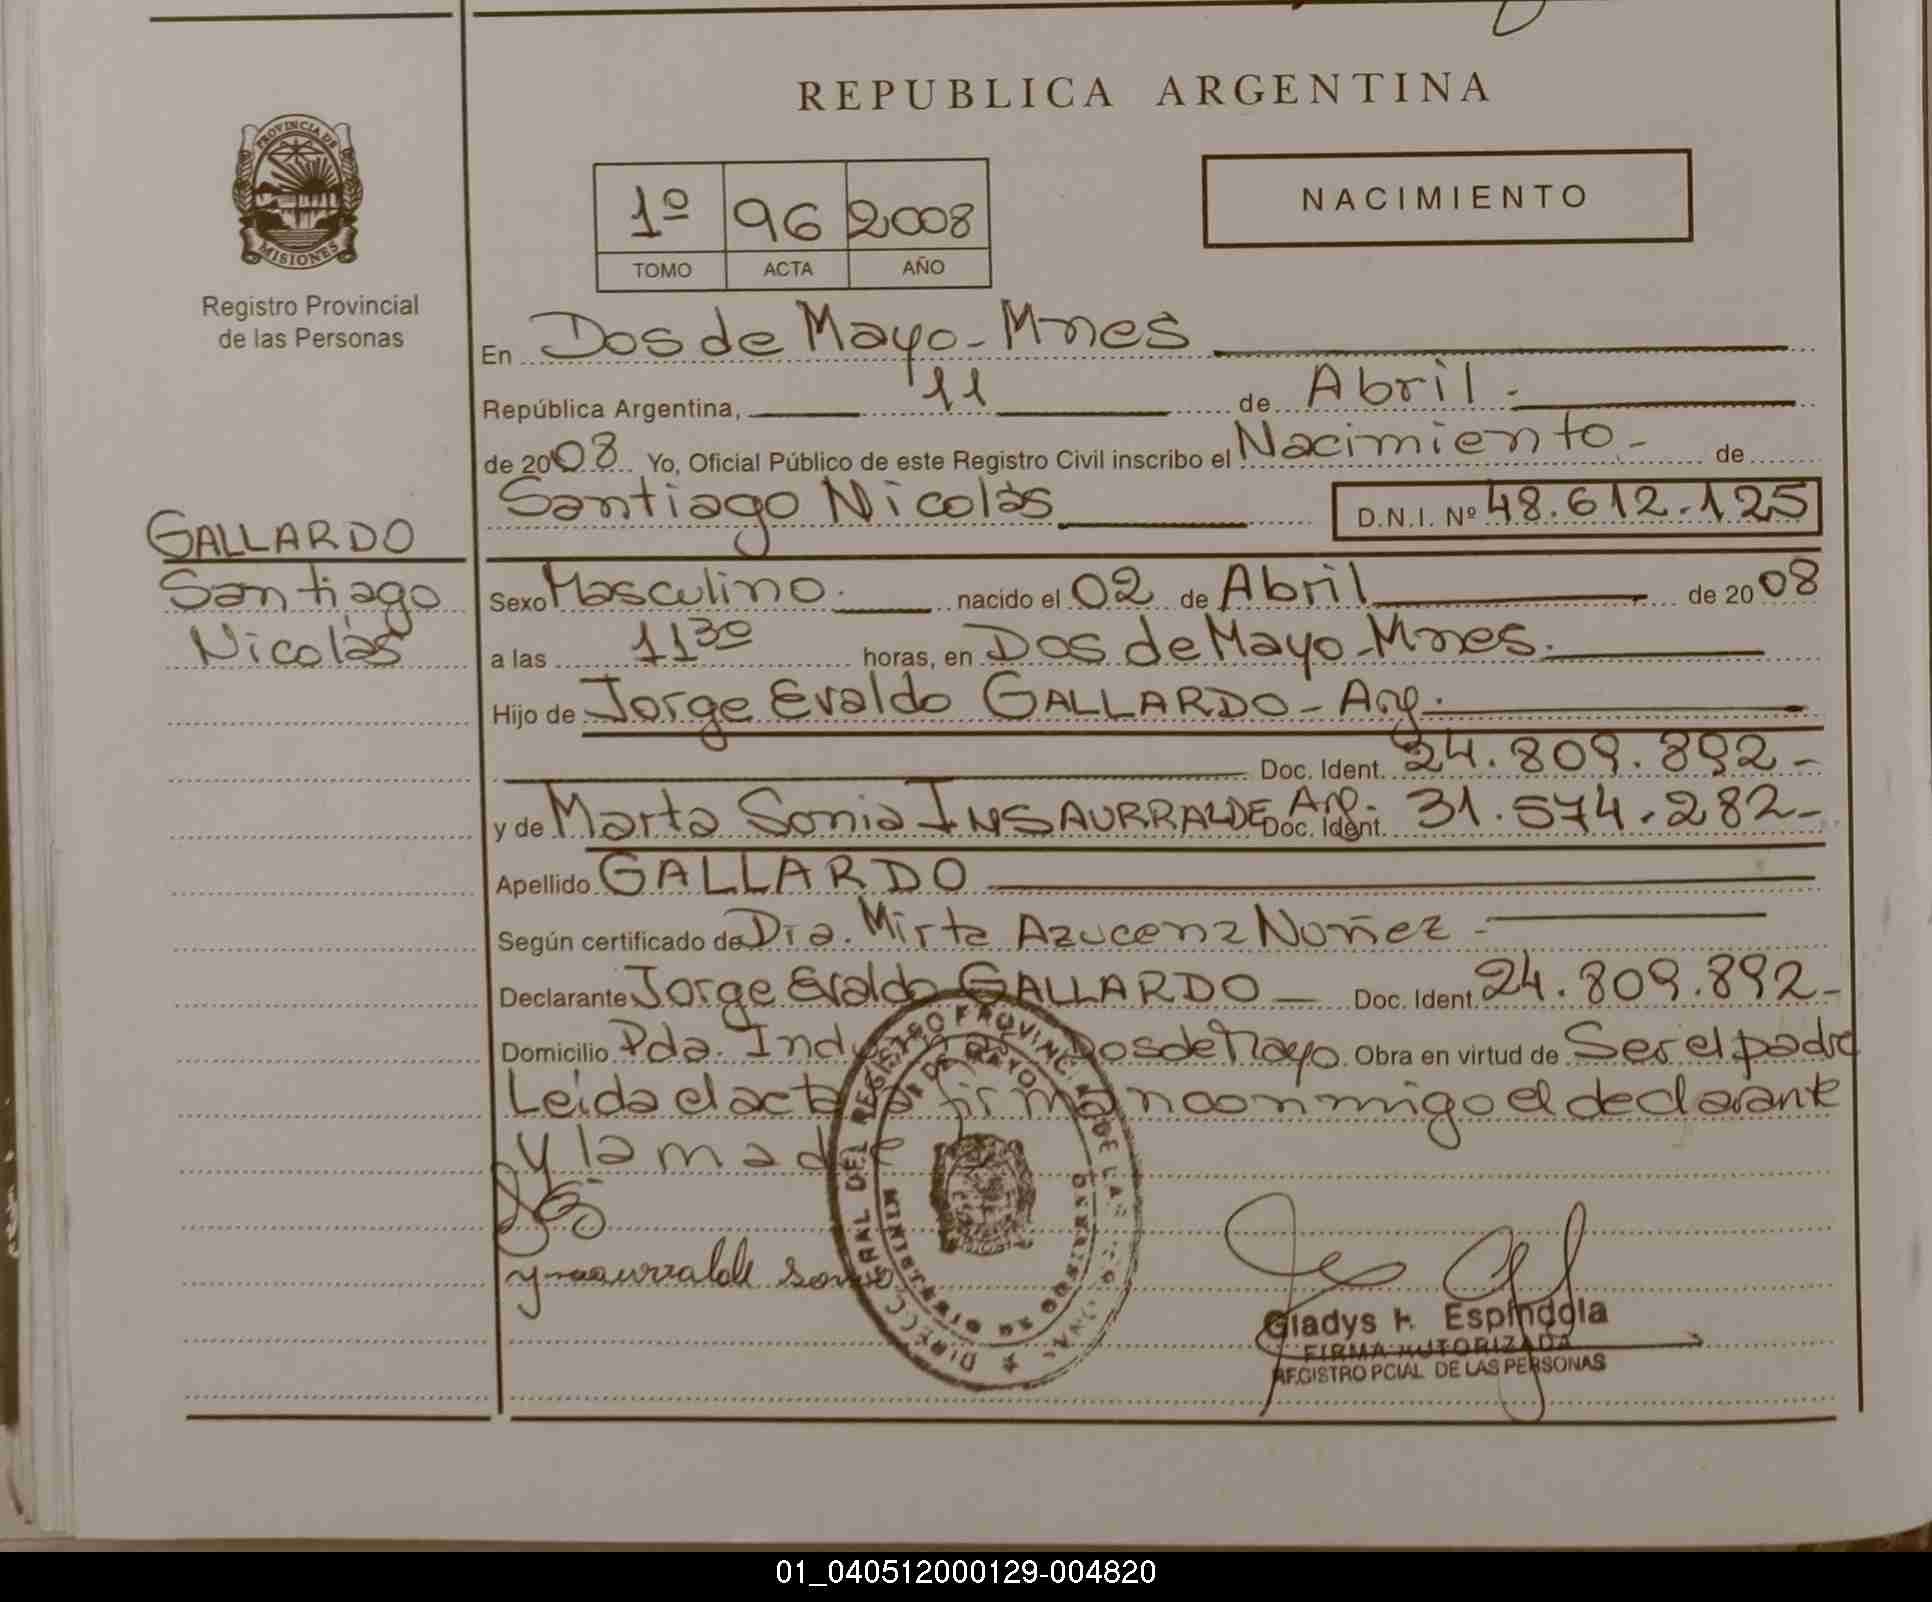 REPUBLICA ARGENTINA
PROVINCIA DE MISIONES
Registro Provincial
de las Personas
1º 96 2008
TOMO ACTA AÑO
NACIMIENTO
En Dos de Mayo - Mnes
República Argentina, 11 de Abril -
de 2008 Yo, Oficial Público de este Registro Civil inscribo el Nacimiento - de
Santiago Nicolás D.N.I. Nº 48.612.125
GALLARDO
Santiago
Nicolás
Sexo Masculino. nacido el 02 de Abril de 2008
a las 11 30 horas, en Dos de Mayo - Mnes.
Hijo de Jorge Evaldo GALLARDO - Arg.
Doc. Ident. 24.809.892 -
y de Marta Sonia INSAURRALDE Arg. Doc. Ident. 31.574.282 -
Apellido GALLARDO
Según certificado de Dra. Mirta Azucena Nuñez -
Declarante Jorge Evaldo GALLARDO - Doc. Ident. 24.809.892 -
Domicilio Pda. Dos de Mayo. Obra en virtud de Ser el padre
Leída el acta la firman conmigo el declarante
y la madre
ynsaurralde sonia
DIRECCION GENERAL DEL REGISTRO PROVINCIAL DE LAS PERSONAS
Gladys H. Espíndola
FIRMA AUTORIZADA
REGISTRO PCIAL DE LAS PERSONAS
01_040512000129-004820